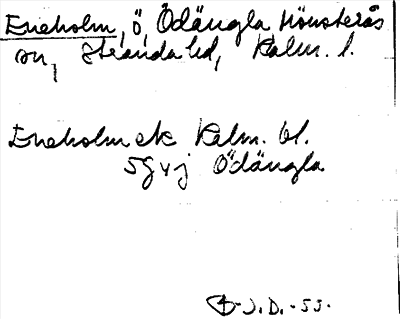 Eneholm, ö, Ödängla, Mönsterås
sn, Stranda hd, Kalm. l.
Eneholm ek Kalm. bl.
5G v j Ödängla
J.D. -55.